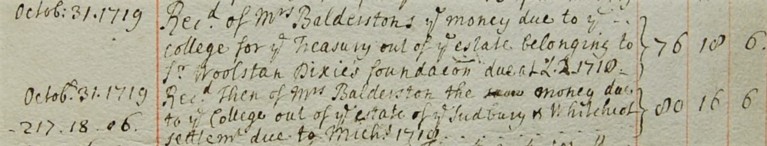 Octob: 31. 1719 Rec.d of Mrs Balderstons ye money due to ye
college for ye Treasury out of ye estate belonging to 76 18 6.
Sr Woolstan Dixies foundacon due at L.D. 1718
Octobr 31. 1719 Rec.d then of Mrs Balderston the money due
-217. 18. 06. to ye College out of ye estate of ye Sudbury & Whitchcot 80 16 6
settlemt due to Michs 1718